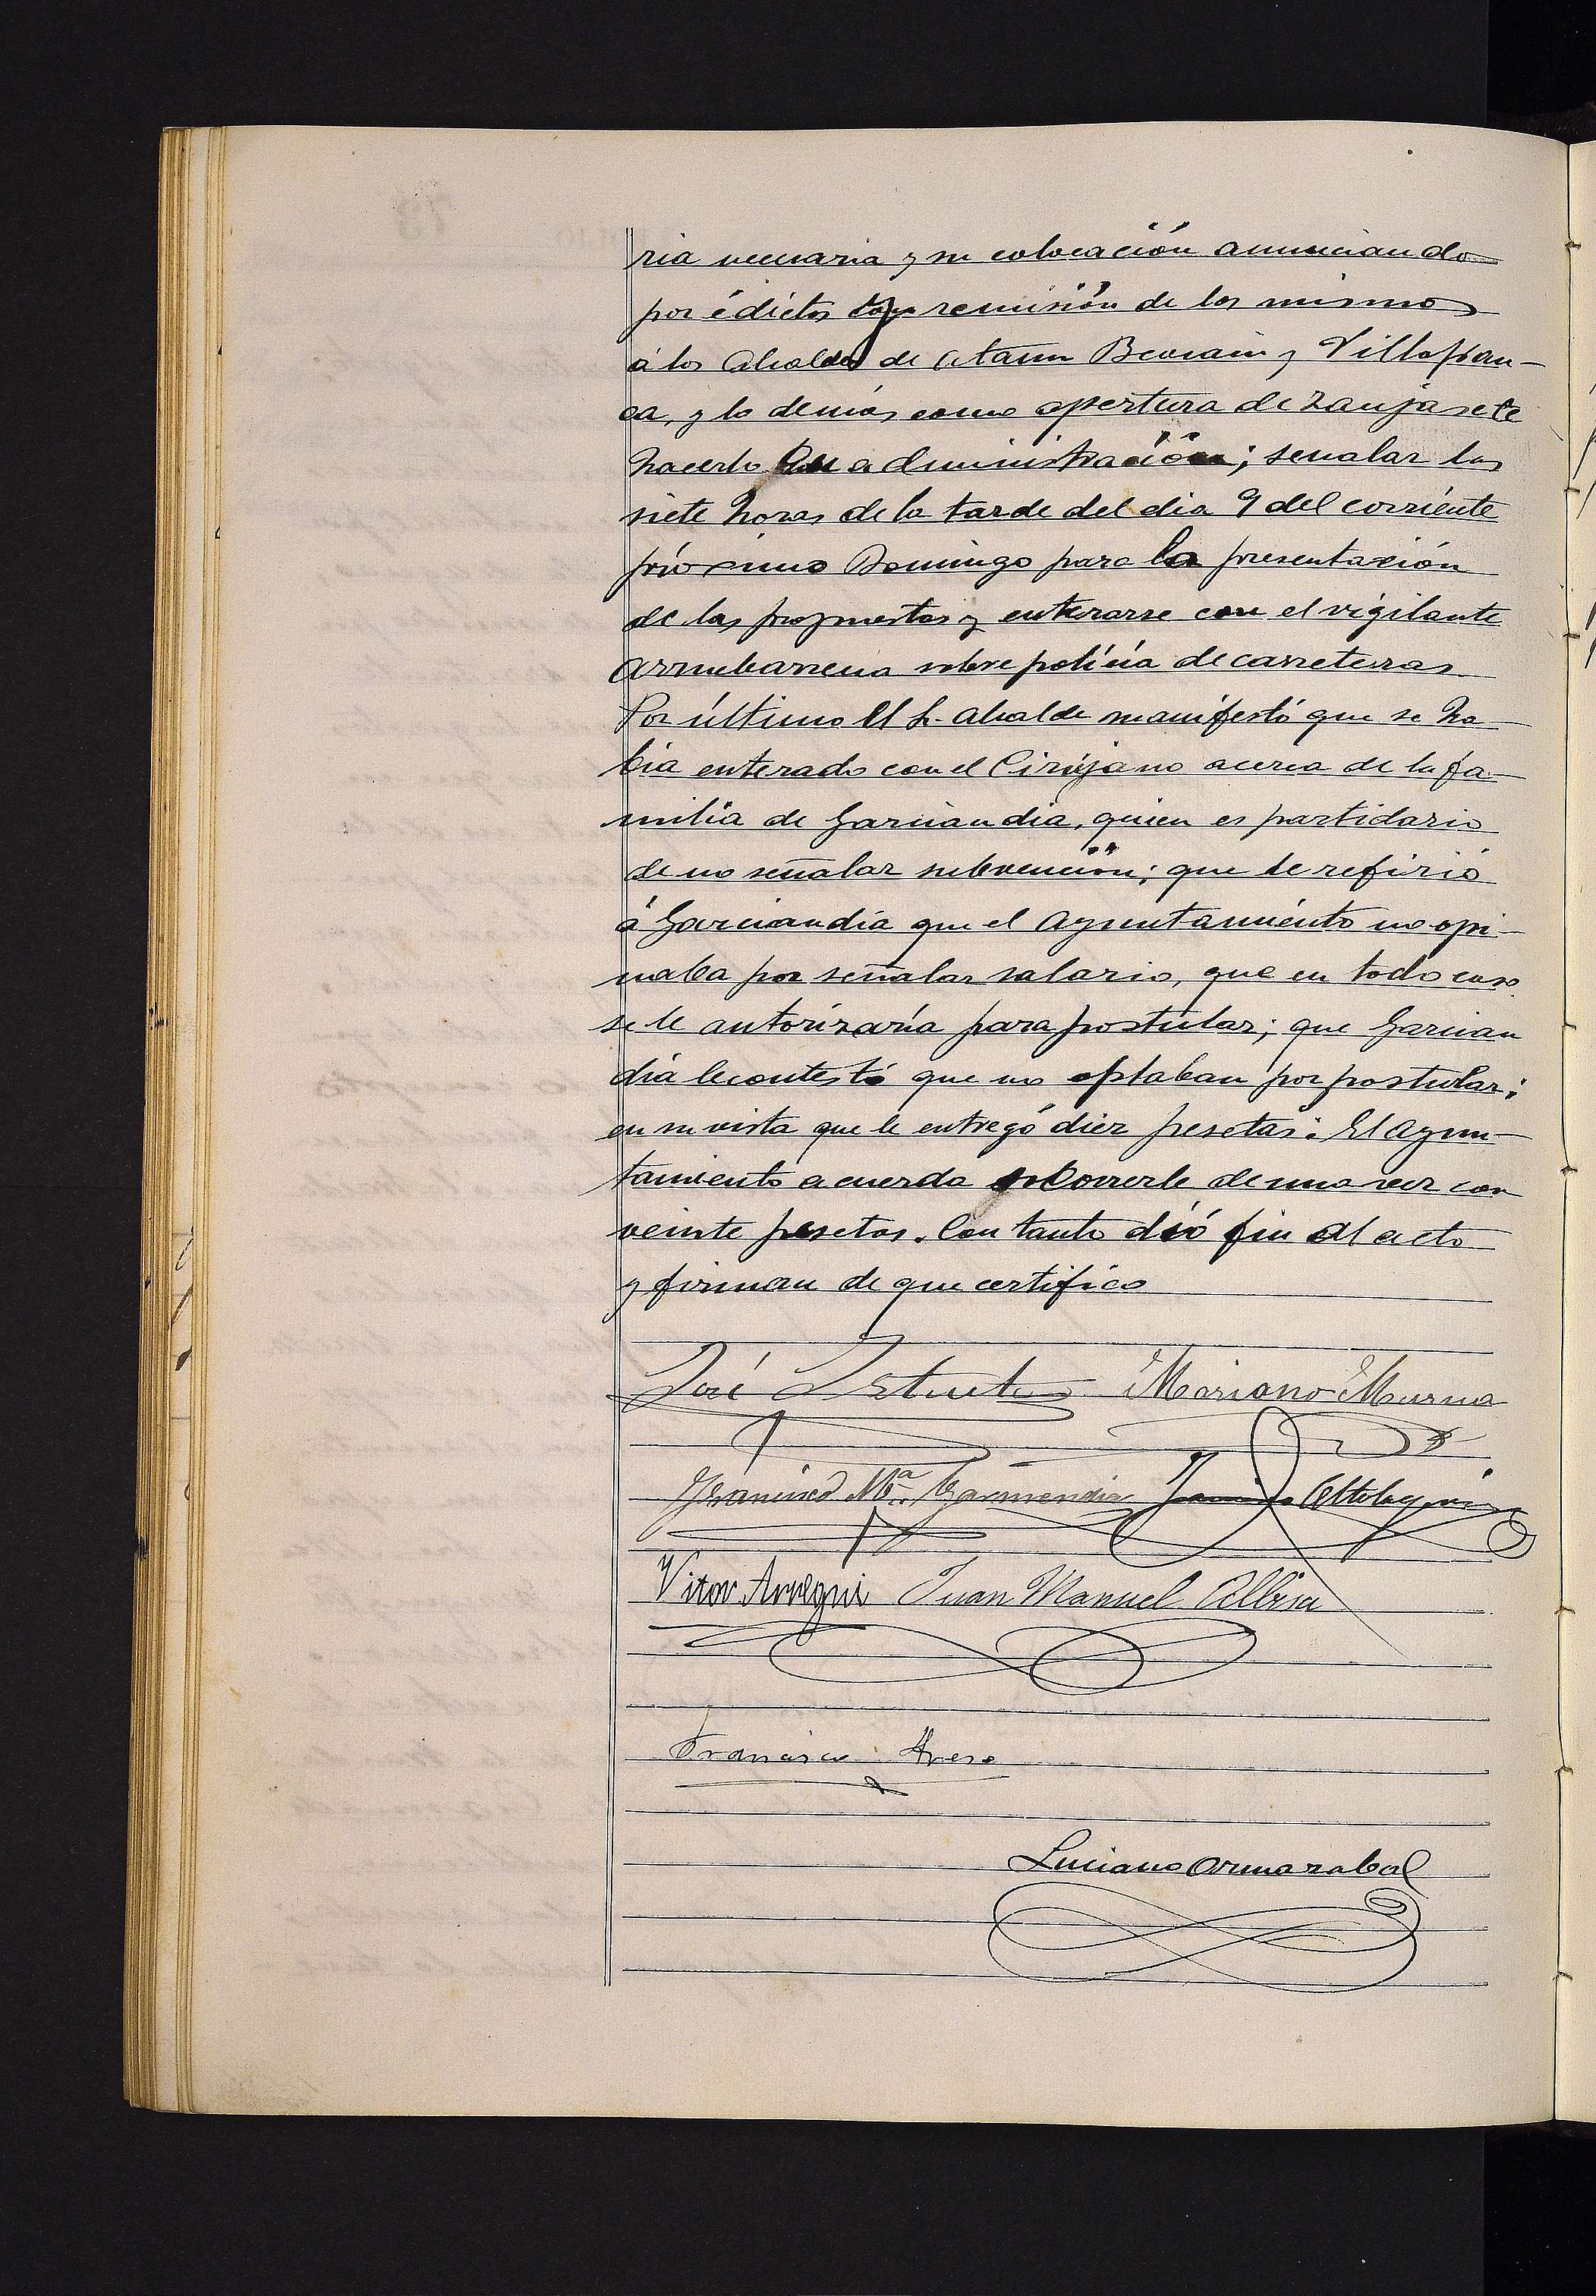 ria necesaria y su colocación anunciando
por édictos con remisión de los mismos
á los Alcaldes de Ataun Beasain y Villafran-
ca, y lo demás como apertura de zanjas etc
hacerlo en administración; señalar las
siete horas de la tarde del dia 9 del corriente
próximo Domingo para la presentación
de las propuestas y enterarse con el vigilante
Arrubarrena sobre policia de carreteras.
Por último El Sr. Alcalde manifestó que se ha-
bia enterado con el Cirujano acerca de la fa-
milia de Garciandia, quien es partidario
de no señalar subvención; que le refirió
á Garciandia que el Ayuntamiento no opi-
naba por señalar salario, que en todo caso
se le autorizaría para postular; que Garcian
dia le contestó que no optaban por postular;
en su vista que le entregó diez pesetas: El Ayun-
tamiento acuerda socorrerle de una vez con
veinte pesetas. Con tanto dió fin al acto
y firman de que certifico
José Mariano Murua
Francisco Mª Garmendia Altolaguirre
Vitor Arregui Juan Manuel Albisu
Francisco
Luciano Ormazabal